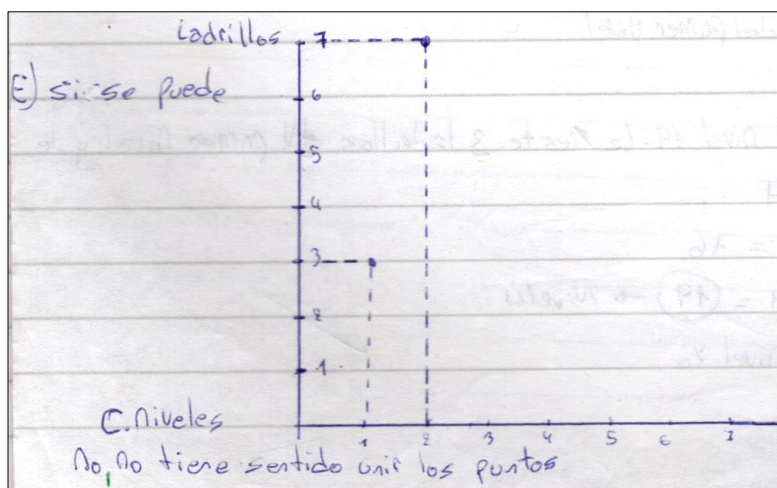 Ladrillos
7
E) si se puede
6
5
4
3
2
1
C. niveles
1 2 3 4 5 6 7
No, no tiene sentido unir los puntos